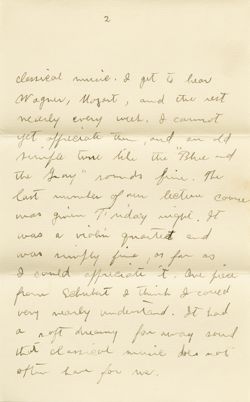 2
classical music. I get to hear
Wagner, Mozart, and the rest
nearly every week. I cannot
yet appreciate them, and an old
simple tune like the "Blue and
the Gray" sounds fine. The
last number of our lecture course
was given Friday night. It
was a violin quartet and
was simply fine, as far as
I could appreciate it. One piece
from Schubert I think I could
very nearly understand. It had
a soft dreamy far away sound
that classical music does not
often have for me.